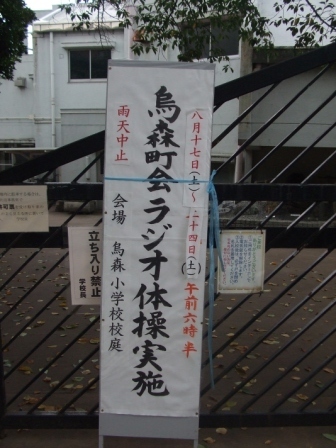 八月十七日(土)～二十四日(土)午前六時半
烏森町会ラジオ体操実施
雨天中止
会場 烏森小学校校庭
立ち入り禁止
学校長